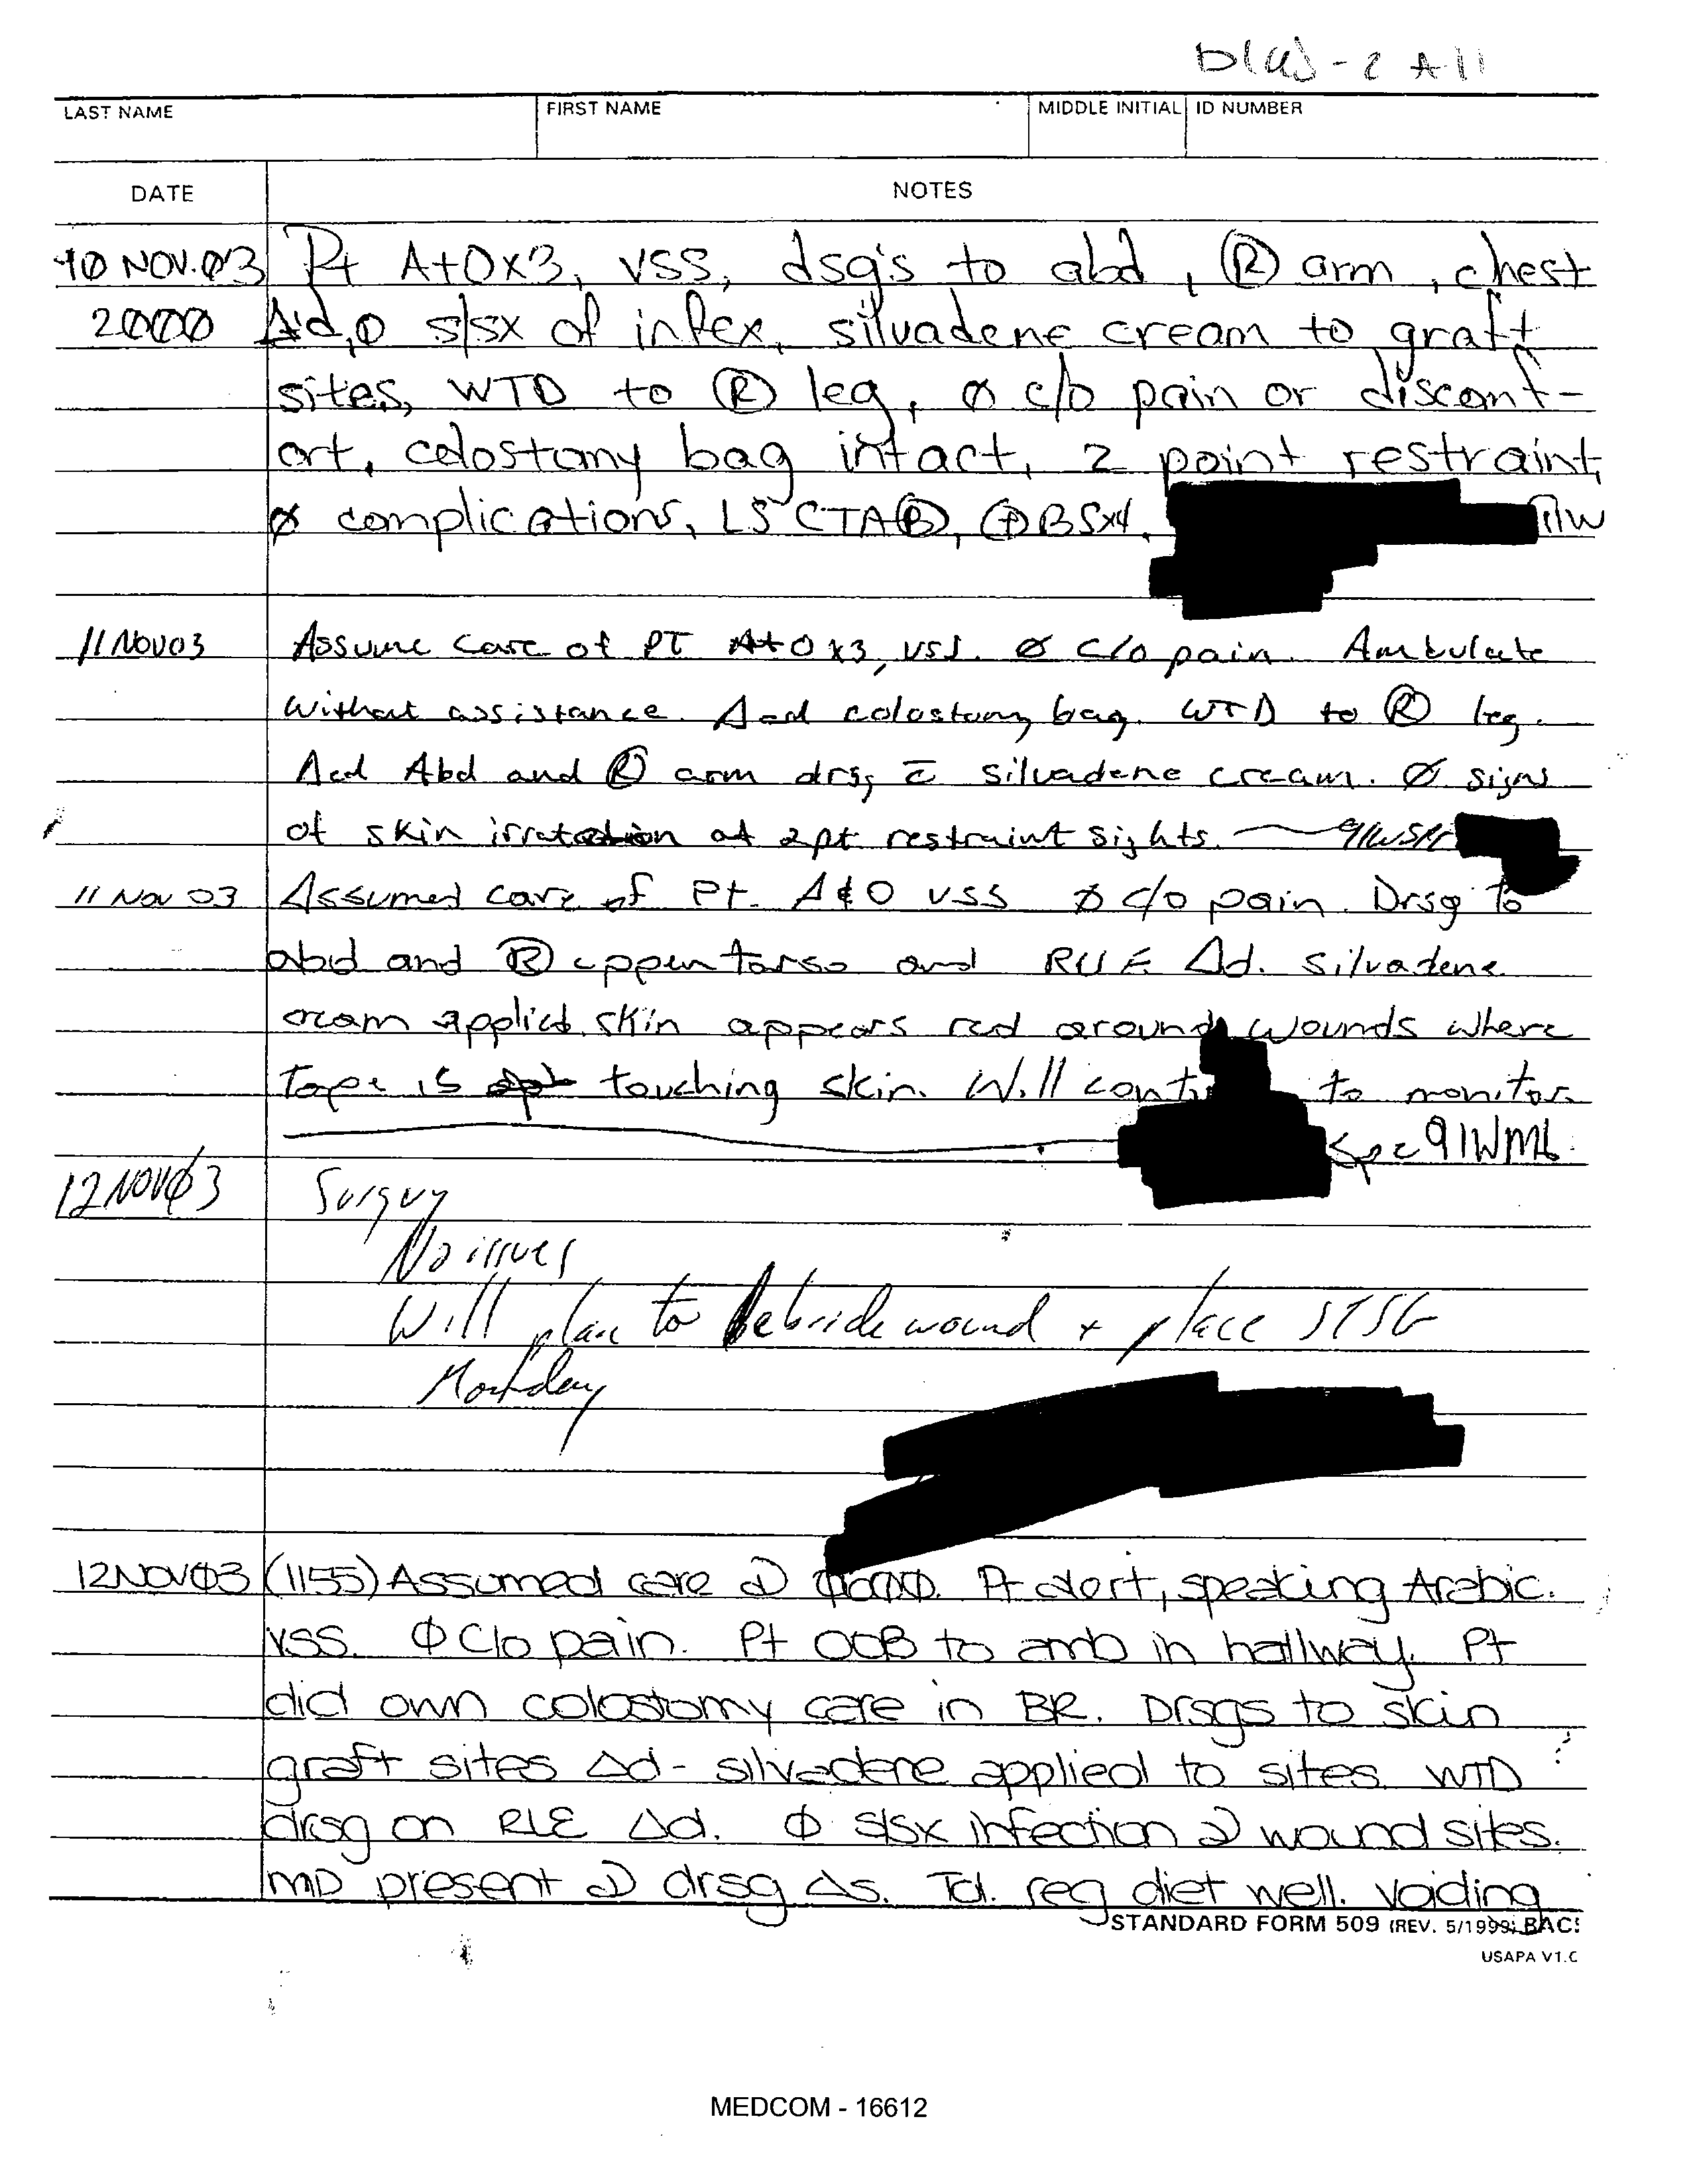 LAST NAME FIRST NAME MIDDLE INITIAL ID NUMBER
DATE NOTES
10 NOV.03 Pt A+Ox3, VSS, dsg's to abd, Ⓡ arm, chest
2000 Δ'd, Ø s/sx of infex, silvadene cream to graft
sites, WTD to Ⓡ leg, Ø c/o pain or discomf-
ort, colostomy bag intact, 2 point restraint,
Ø complications, LS CTAⒷ, ⊕BSx4.
11 Nov 03 Assume care of PT A+O x3, VSS. Ø c/o pain. Ambulate
without assistance. Δed colostomy bag. WTD to Ⓡ leg.
Δed Abd and Ⓡ arm drsg c̄ silvadene cream. Ø signs
of skin irratation at 2pt restraint sights.
11 Nov 03 Assumed care of Pt. A&O VSS Ø c/o pain. Drsg to
abd and Ⓡ upper torso and RUE Δd. Silvadene
cream applied. skin appears red around wounds where
tape is touching skin. Will to monitor.
Spc 91WM6
12 NOV03 Surgery
No issues
Will plan to debride wound + place STSG
Monday
12NOV03 (1155) Assumed care @ Pt alert, speaking Arabic.
VSS. Ø C/o pain. Pt OOB to amb in hallway. Pt
did own colostomy care in BR. Drsgs to skin
graft sites Δd - silvadene applied to sites. WTD
drsg on RLE Δd. Ø s/sx infection @ wound sites.
MD present @ drsg Δs. Tol. reg diet well. Voiding
STANDARD FORM 509 (REV. 5/1999) BAC
USAPA V1.0
MEDCOM - 16612